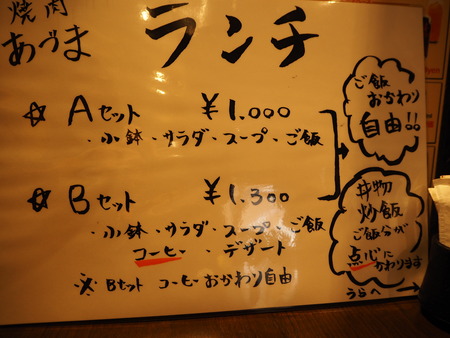 焼肉
あづま
ランチ
☆ Aセット ¥1,000
・小鉢・サラダ・スープ・ご飯
☆ Bセット ¥1,300
・小鉢・サラダ・スープ・ご飯
コーヒー・デザート
※ Bセット コーヒーおかわり自由
ご飯
おかわり
自由!!
丼物
炒飯
ご飯分が
点心に
かわります
うらへ→